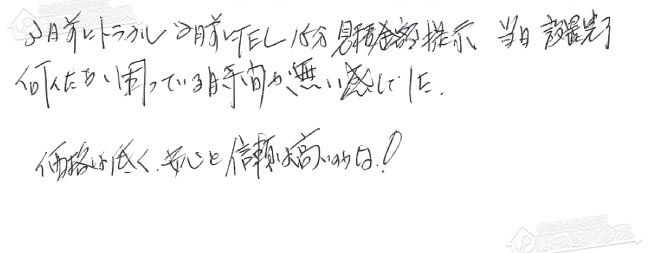 日前にトラブル 日前にTEL 15分 見積金額提示 当日 設置完了
何だか困っている時間が無い感じでした。
価格は低く、安心と信頼は高いのは!